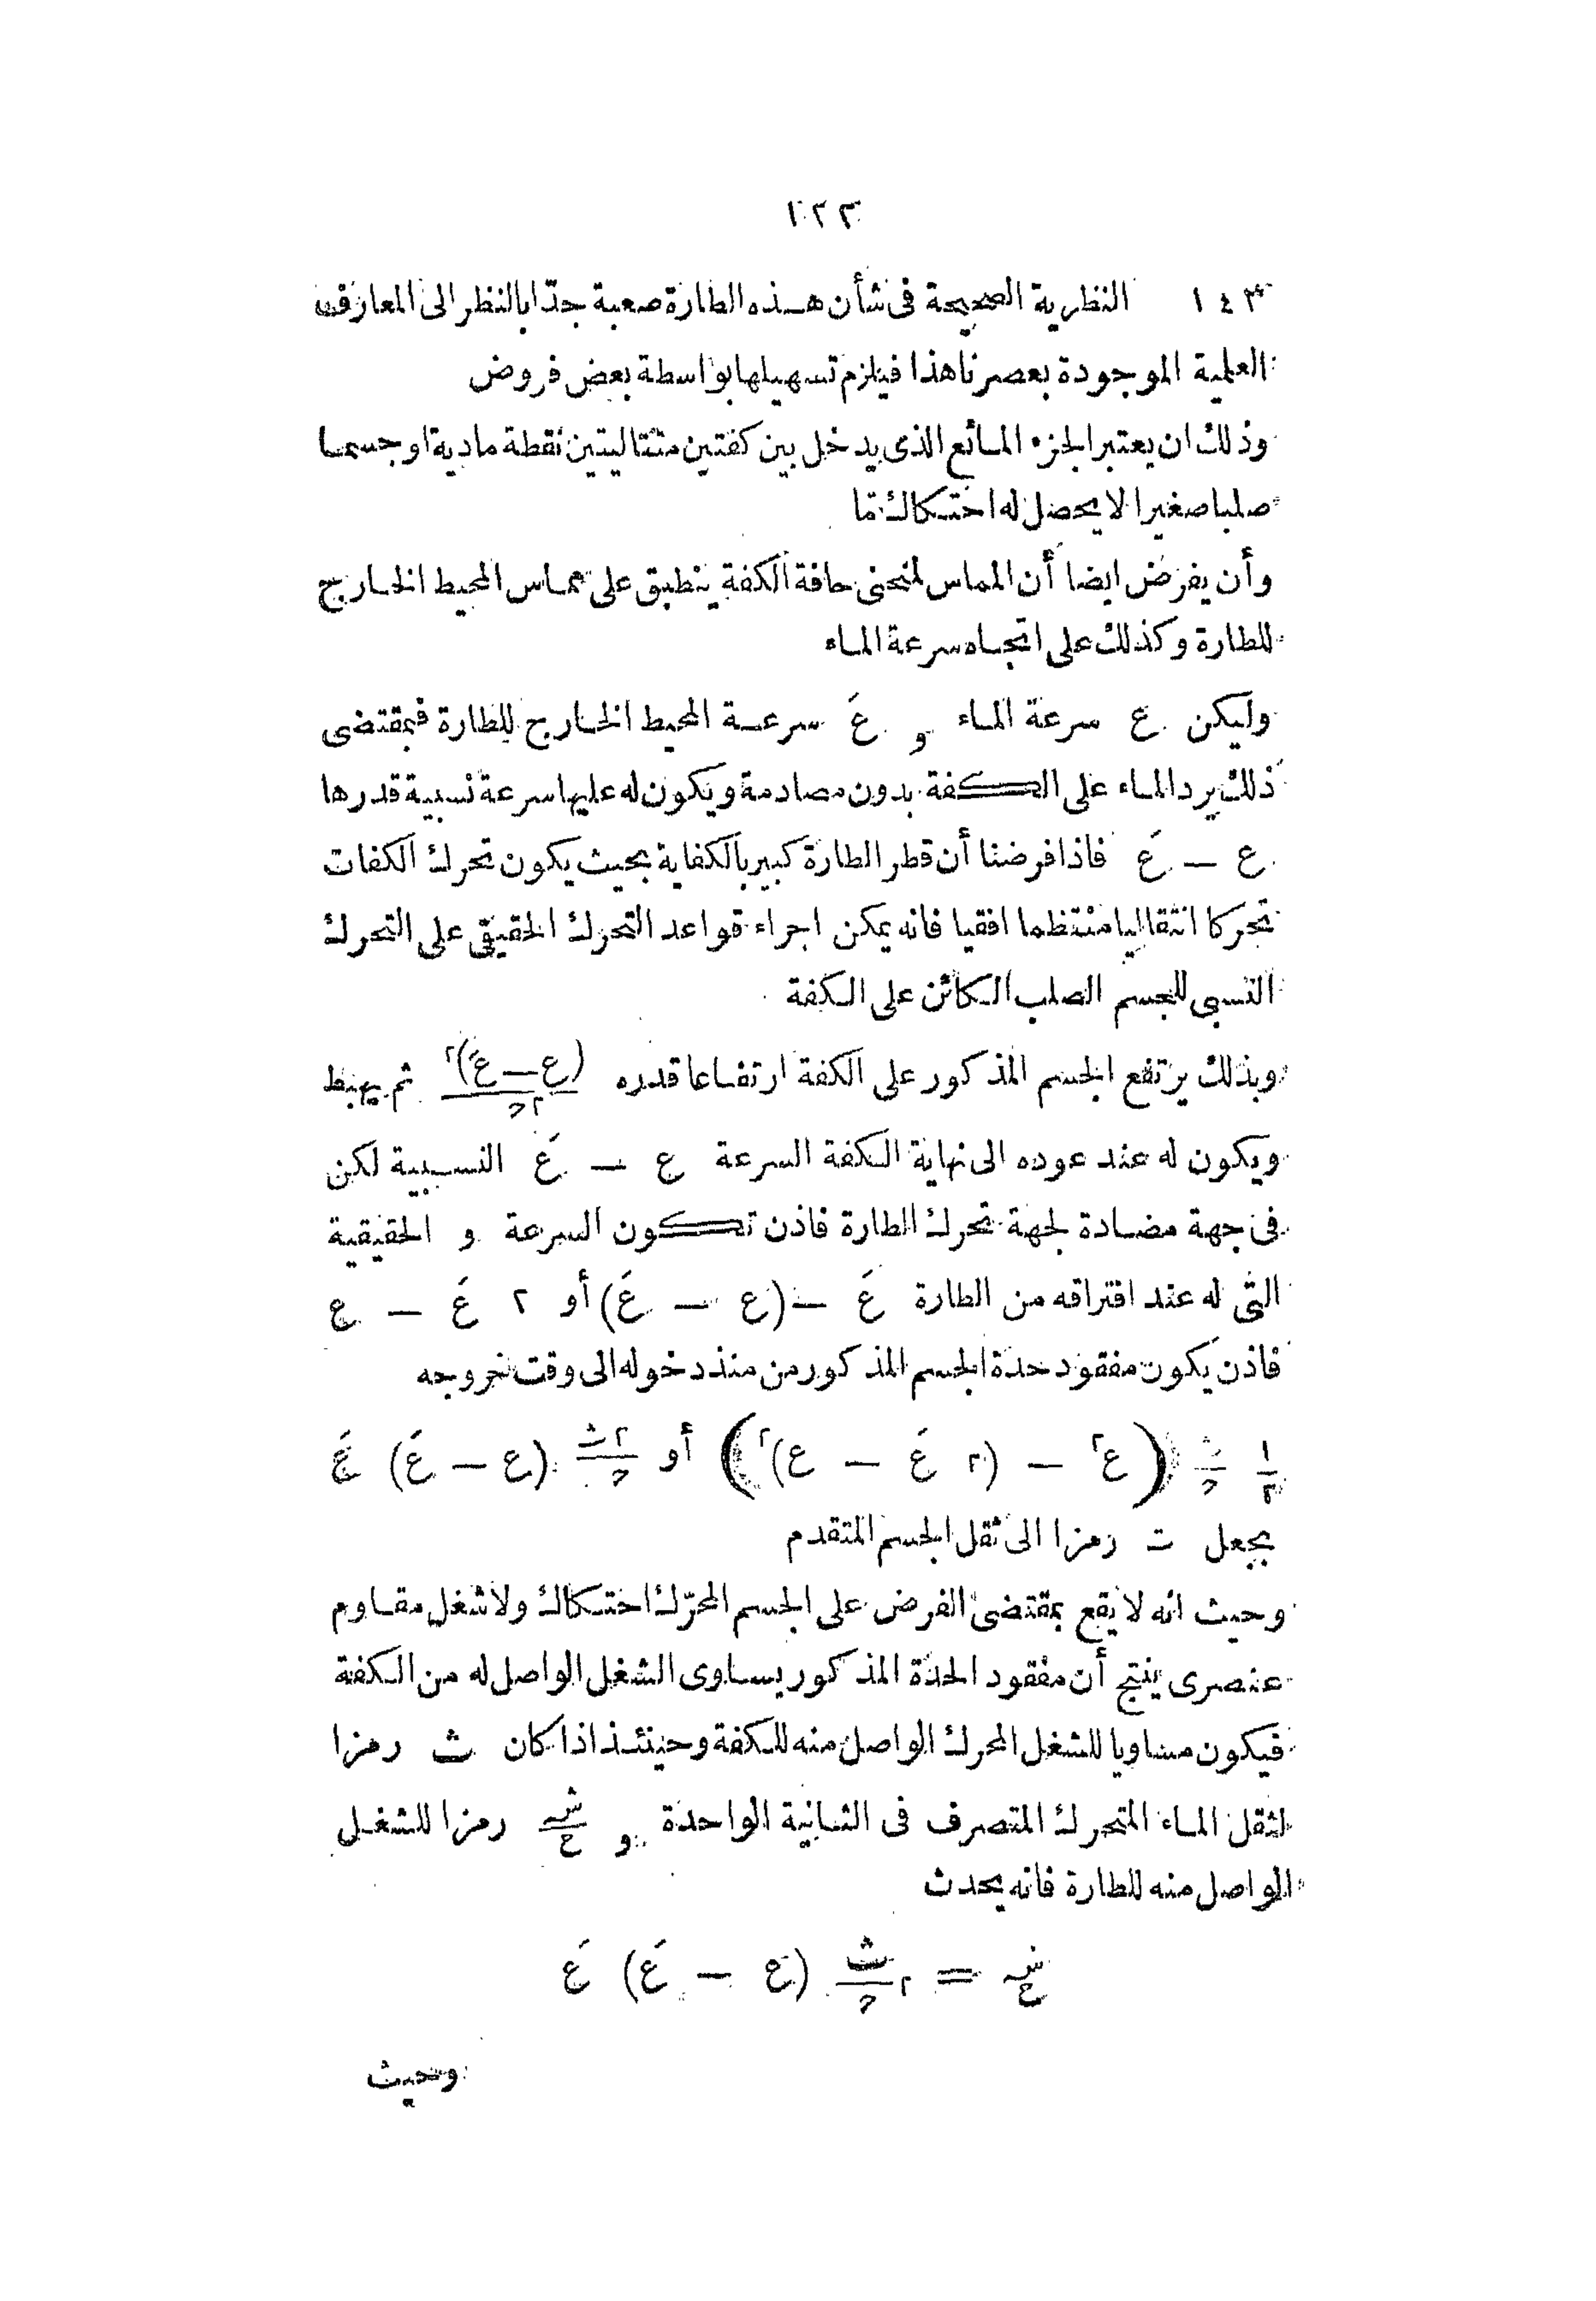 ١٢٣
١٤٣ النظرية الصحيحة فى شأن هـذه الطارة صعبة جدّا بالنظر الى المعارف
العلمية الموجودة بعصرنا هذا فيلزم تسهيلها بواسطة بعض فروض
وذلك ان يعتبر الجزء المائع الذى يدخل بين كفتين متتاليتين نقطة مادية او جسما
صلبا صغيرا لا يحصل له احتكاك تما
وأن يفرض ايضا أن المماس لمنحنى حافة الكفة ينطبق على مماس المحيط الخارج
للطارة وكذلك على اتجاه سرعة الماء
وليكن ع سرعة الماء و عَ سرعة المحيط الخارج للطارة فبمقتضى
ذلك يرد الماء على الكفة بدون مصادمة ويكون له عليها سرعة نسبية قدرها
ع — عَ فاذا فرضنا أن قطر الطارة كبير بالكفاية بحيث يكون تحرك الكفات
تحركا انتقاليا منتظما افقيا فانه يمكن اجراء قواعد التحرك الحقيقى على التحرك
النسبى للجسم الصلب الكائن على الكفة
وبذلك يرتفع الجسم المذكور على الكفة ارتفاعا قدره (ع — عَ)٢ / ٢ء ثم يهبط
ويكون له عند عوده الى نهاية الكفة السرعة ع — عَ النسبية لكن
فى جهة مضادة لجهة تحرك الطارة فاذن تكون السرعة و الحقيقية
التى له عند افتراقه من الطارة عَ — (ع — عَ) أو ٢ عَ — ع
فاذن يكون مفقود حدة الجسم المذكور من منذ دخوله الى وقت خروجه
١/٢ ث/ء (ع٢ — (٢ عَ — ع)٢) أو ٢ث/ء (ع — عَ) عَ
بجعل ث رمزا الى ثقل الجسم المتقدم
وحيث انه لا يقع بمقتضى الفرض على الجسم المحرّك احتكاك ولا شغل مقاوم
عنصرى ينتج أن مفقود الحدّة المذكور يساوى الشغل الواصل له من الكفة
فيكون مساويا للشغل المحرك الواصل منه للكفة وحينئـذ اذا كان ث رمزا
لثقل الماء المتحرك المتصرف فى الثانية الواحدة و شـ/ع رمزا للشغل
الواصل منه للطارة فانه يحدث
شـ/ع = ٢ ث/ء (ع — عَ) عَ
وحيث